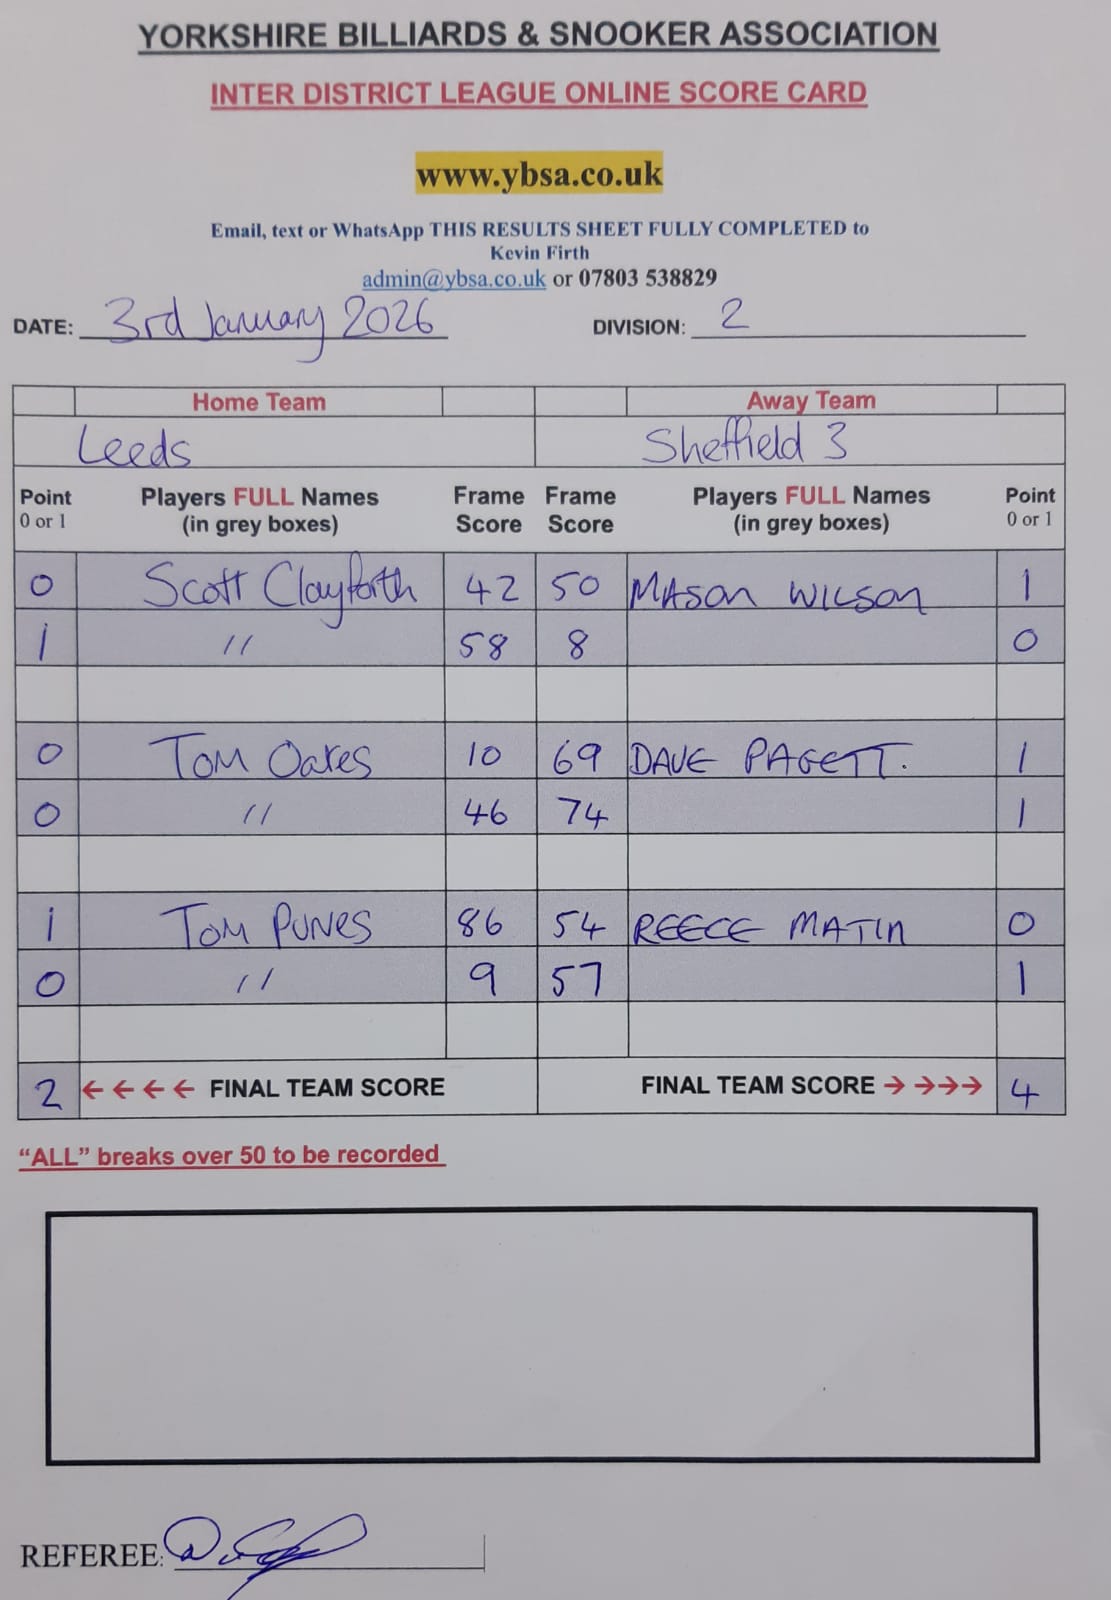 YORKSHIRE BILLIARDS & SNOOKER ASSOCIATION
INTER DISTRICT LEAGUE ONLINE SCORE CARD
www.ybsa.co.uk
Email, text or WhatsApp THIS RESULTS SHEET FULLY COMPLETED to
Kevin Firth
admin@ybsa.co.uk or 07803 538829
DATE: 3rd January 2026 DIVISION: 2
Home Team Away Team
Leeds Sheffield 3
Point Players FULL Names Frame Frame Players FULL Names Point
0 or 1 (in grey boxes) Score Score (in grey boxes) 0 or 1
0 Scott Clayforth 42 50 MASON WILSON 1
1 " 58 8 0
0 Tom Oates 10 69 DAVE PAGETT. 1
0 " 46 74 1
1 Tom 86 54 REECE MATIN 0
0 " 9 57 1
2 ←←←← FINAL TEAM SCORE FINAL TEAM SCORE →→→→ 4
“ALL” breaks over 50 to be recorded
REFEREE: